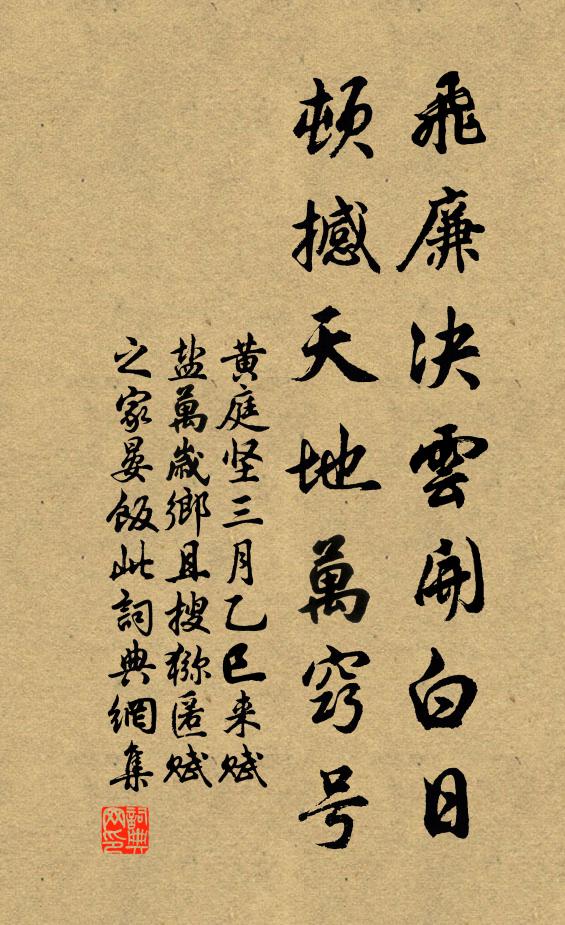 飛廉決雲開白日
頓撼天地萬竅号
黄庭坚三月乙巳来赋
盐萬歲鄉且搜猕匿赋
之家晏飯此詞典網集
詞典网印